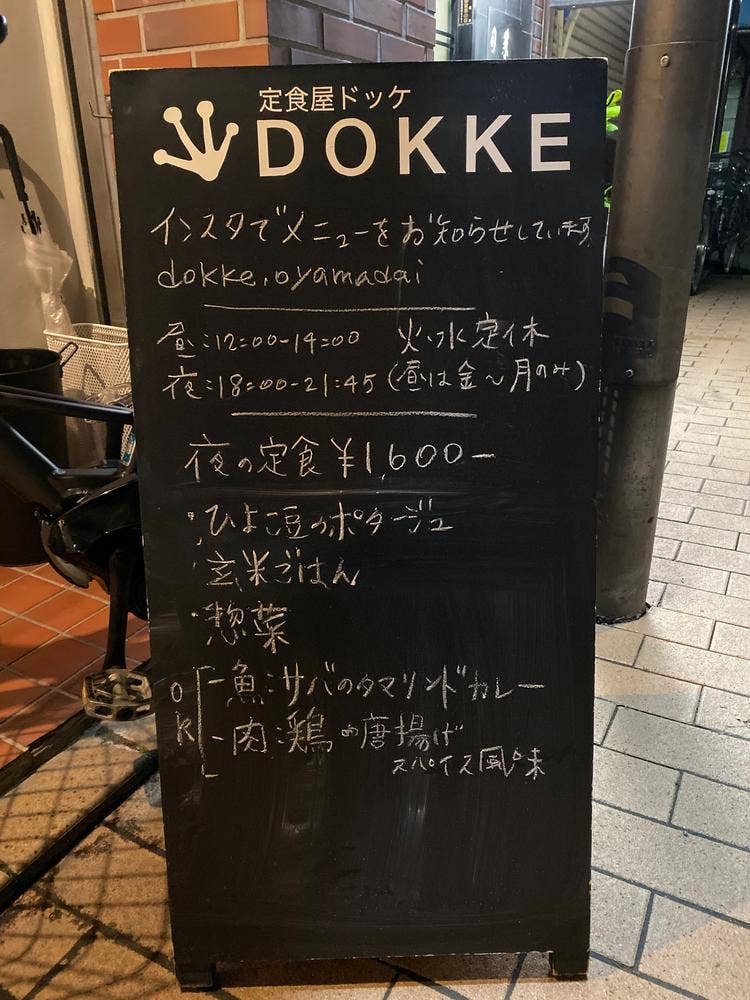 定食屋ドッケ
DOKKE
インスタでメニューをお知らせしています
dokke.oyamadai
昼:12:00-14:00 火・水定休
夜:18:00-21:45 (昼は金〜月のみ)
夜の定食 ¥1,600-
・ひよこ豆のポタージュ
・玄米ごはん
・惣菜
OK
- 魚:サバのタマリンドカレー
- 肉:鶏の唐揚げ
スパイス風味